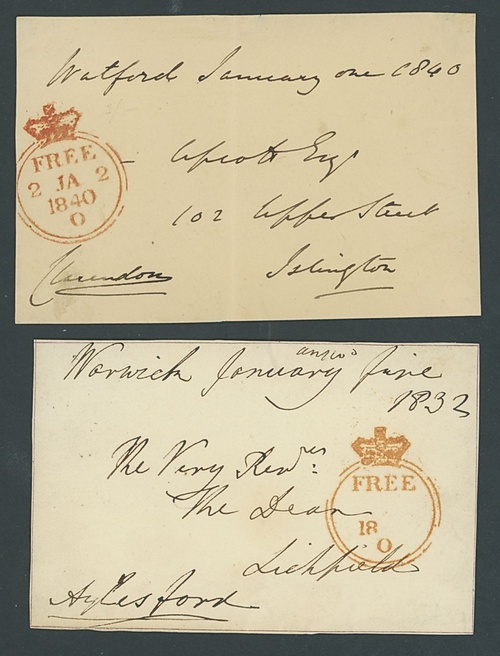 Watford January one 1840
FREE
2 JA 2
1840
O
Upcott Esqr
102 Upper Street
Islington
Clarendon
answd
Warwick January five
1832
The Very Revd
The Dean
Lichfield
FREE
18
O
Aylesford